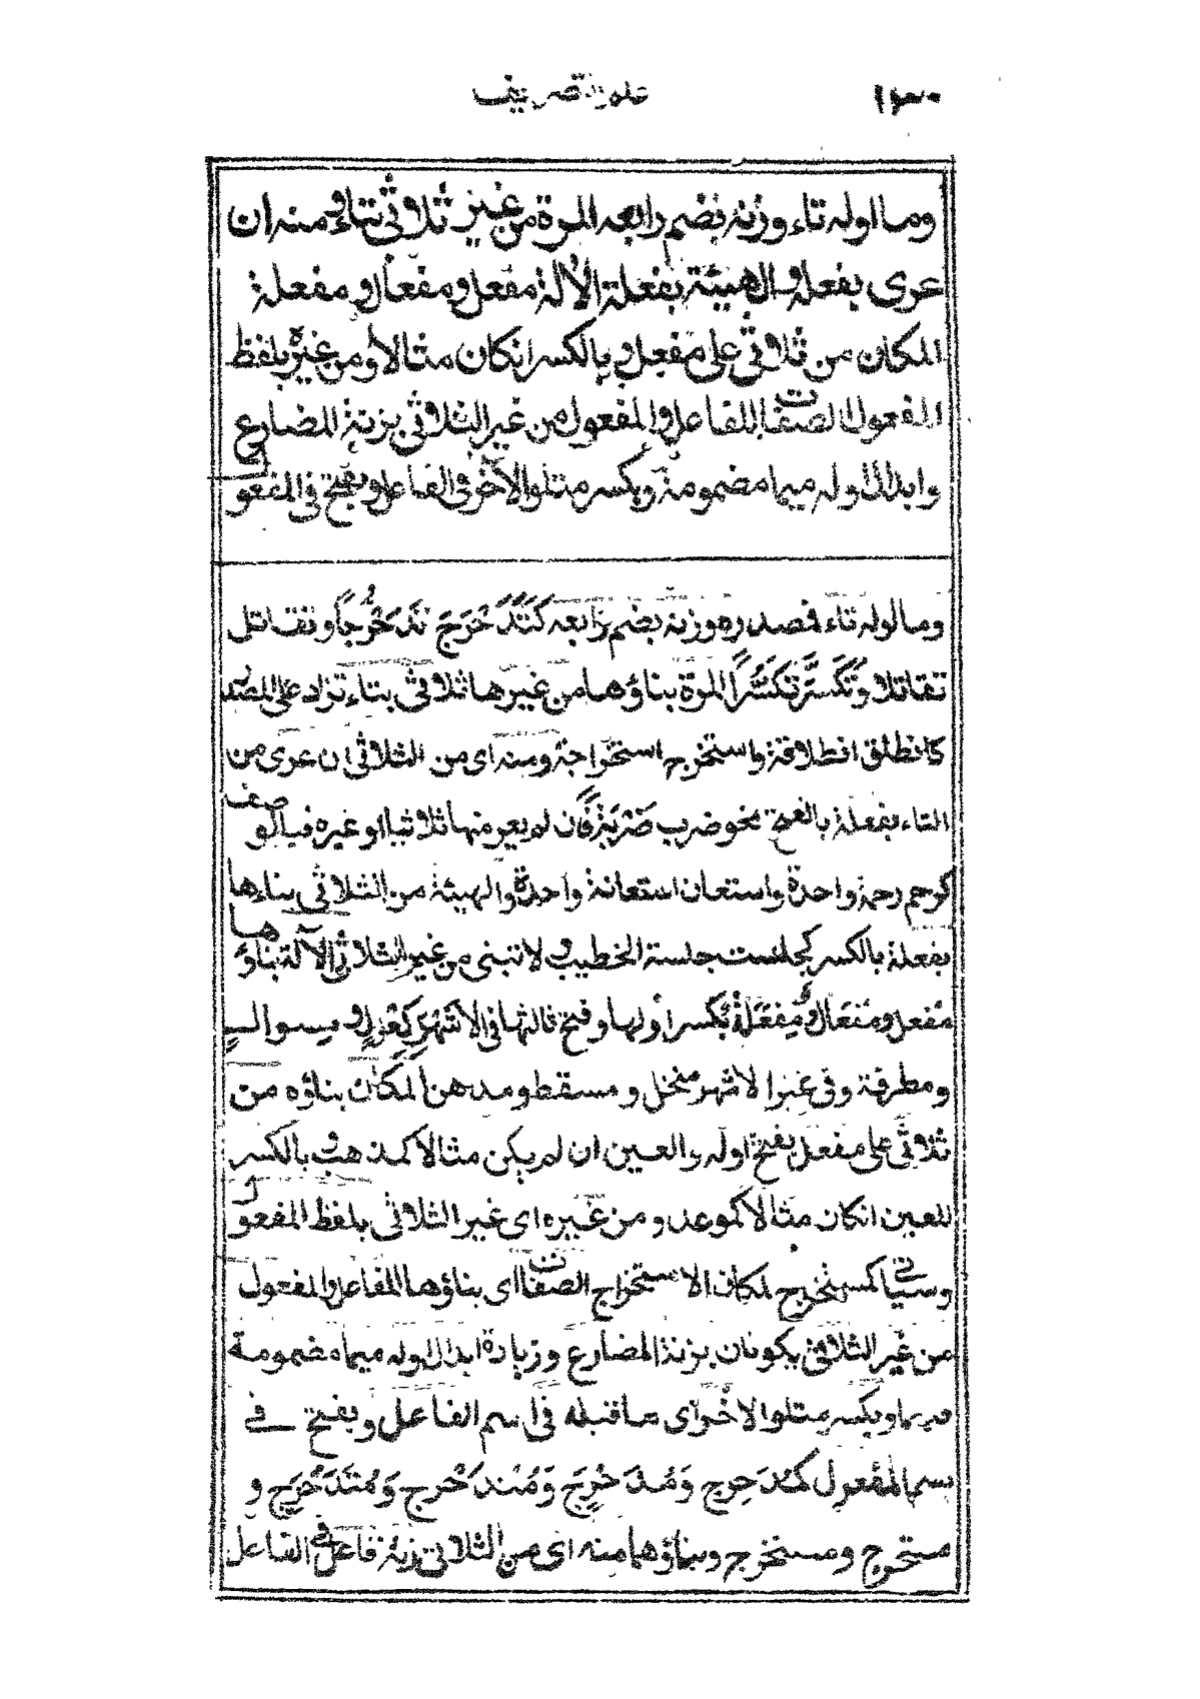 ١٣٠ علم التصريف
وما اوله تاء وزنه بضم رابعه المرة من غير ثلاثي بتاء ومنه ان
عرى بفعلة والهيئة بفعلة الآلة مفعل ومفعال ومفعلة
المكان من ثلاثي على مفعل وبالكسر انكان مثالا ومن غيره بلفظ
المفعول الصفات للفاعل والمفعول من غير الثلاثي بزنة المضارع
وابدال اوله ميما مضمومة ويكسر متلو الآخر في الفاعل ويفتح في المفعول
وما اوله تاء فمصدره وزنه بضم رابعه كَتَدَحْرَجَ تَدَحْرُجاً وتقاتل
تقاتلا وتَكَسَّرَ تَكَسُّراً المرة بناؤها من غيرها ثلاثي بتاء تزاد على المصدر
كانطلق انطلاقة واستخرج استخراجة ومنه اى من الثلاثي ان عرى من
التاء بفعلة بالفتح نحو ضرب ضَرْبَةً فان لم يعر منها ثلاثيا او غيره فبالوصف
كرحم رحمة واحدة واستعان استعانة واحدة والهيئة من الثلاثي بناءها
بفعلة بالكسر كجلست جلسة الخطيب ولا تبنى من غير الثلاثي الآلة بناؤها
مفعل ومفعال ومِفعَلة بكسر أولها وفتح ثالثها في الاشهر كمِعْزل ومسواك
ومطرقة وفي غير الاشهر منخل ومسقط ومدهن المكان بناؤه من
ثلاثي على مفعل بفتح اوله والعين ان لم يكن مثالا كمذهب وبالكسر
للعين انكان مثالا كموعد ومن غيره اى غير الثلاثي بلفظ المفعول
وسيأتي كمستخرج لمكان الاستخراج الصفات اى بناؤها للفاعل والمفعول
من غير الثلاثي يكونان بزنة المضارع وزيادة ابدال اوله ميما مضمومة
ويكسر متلو الآخر اى ما قبله في اسم الفاعل ويفتح في
اسم المفعول كمُدَحرِج وَمُدَحْرَج وَمُتَدَحْرِج وَمُتَدَحْرَج و
مستخرج ومستخرج وبناؤهما منه اى من الثلاثي بزنة فاعل في الفاعل